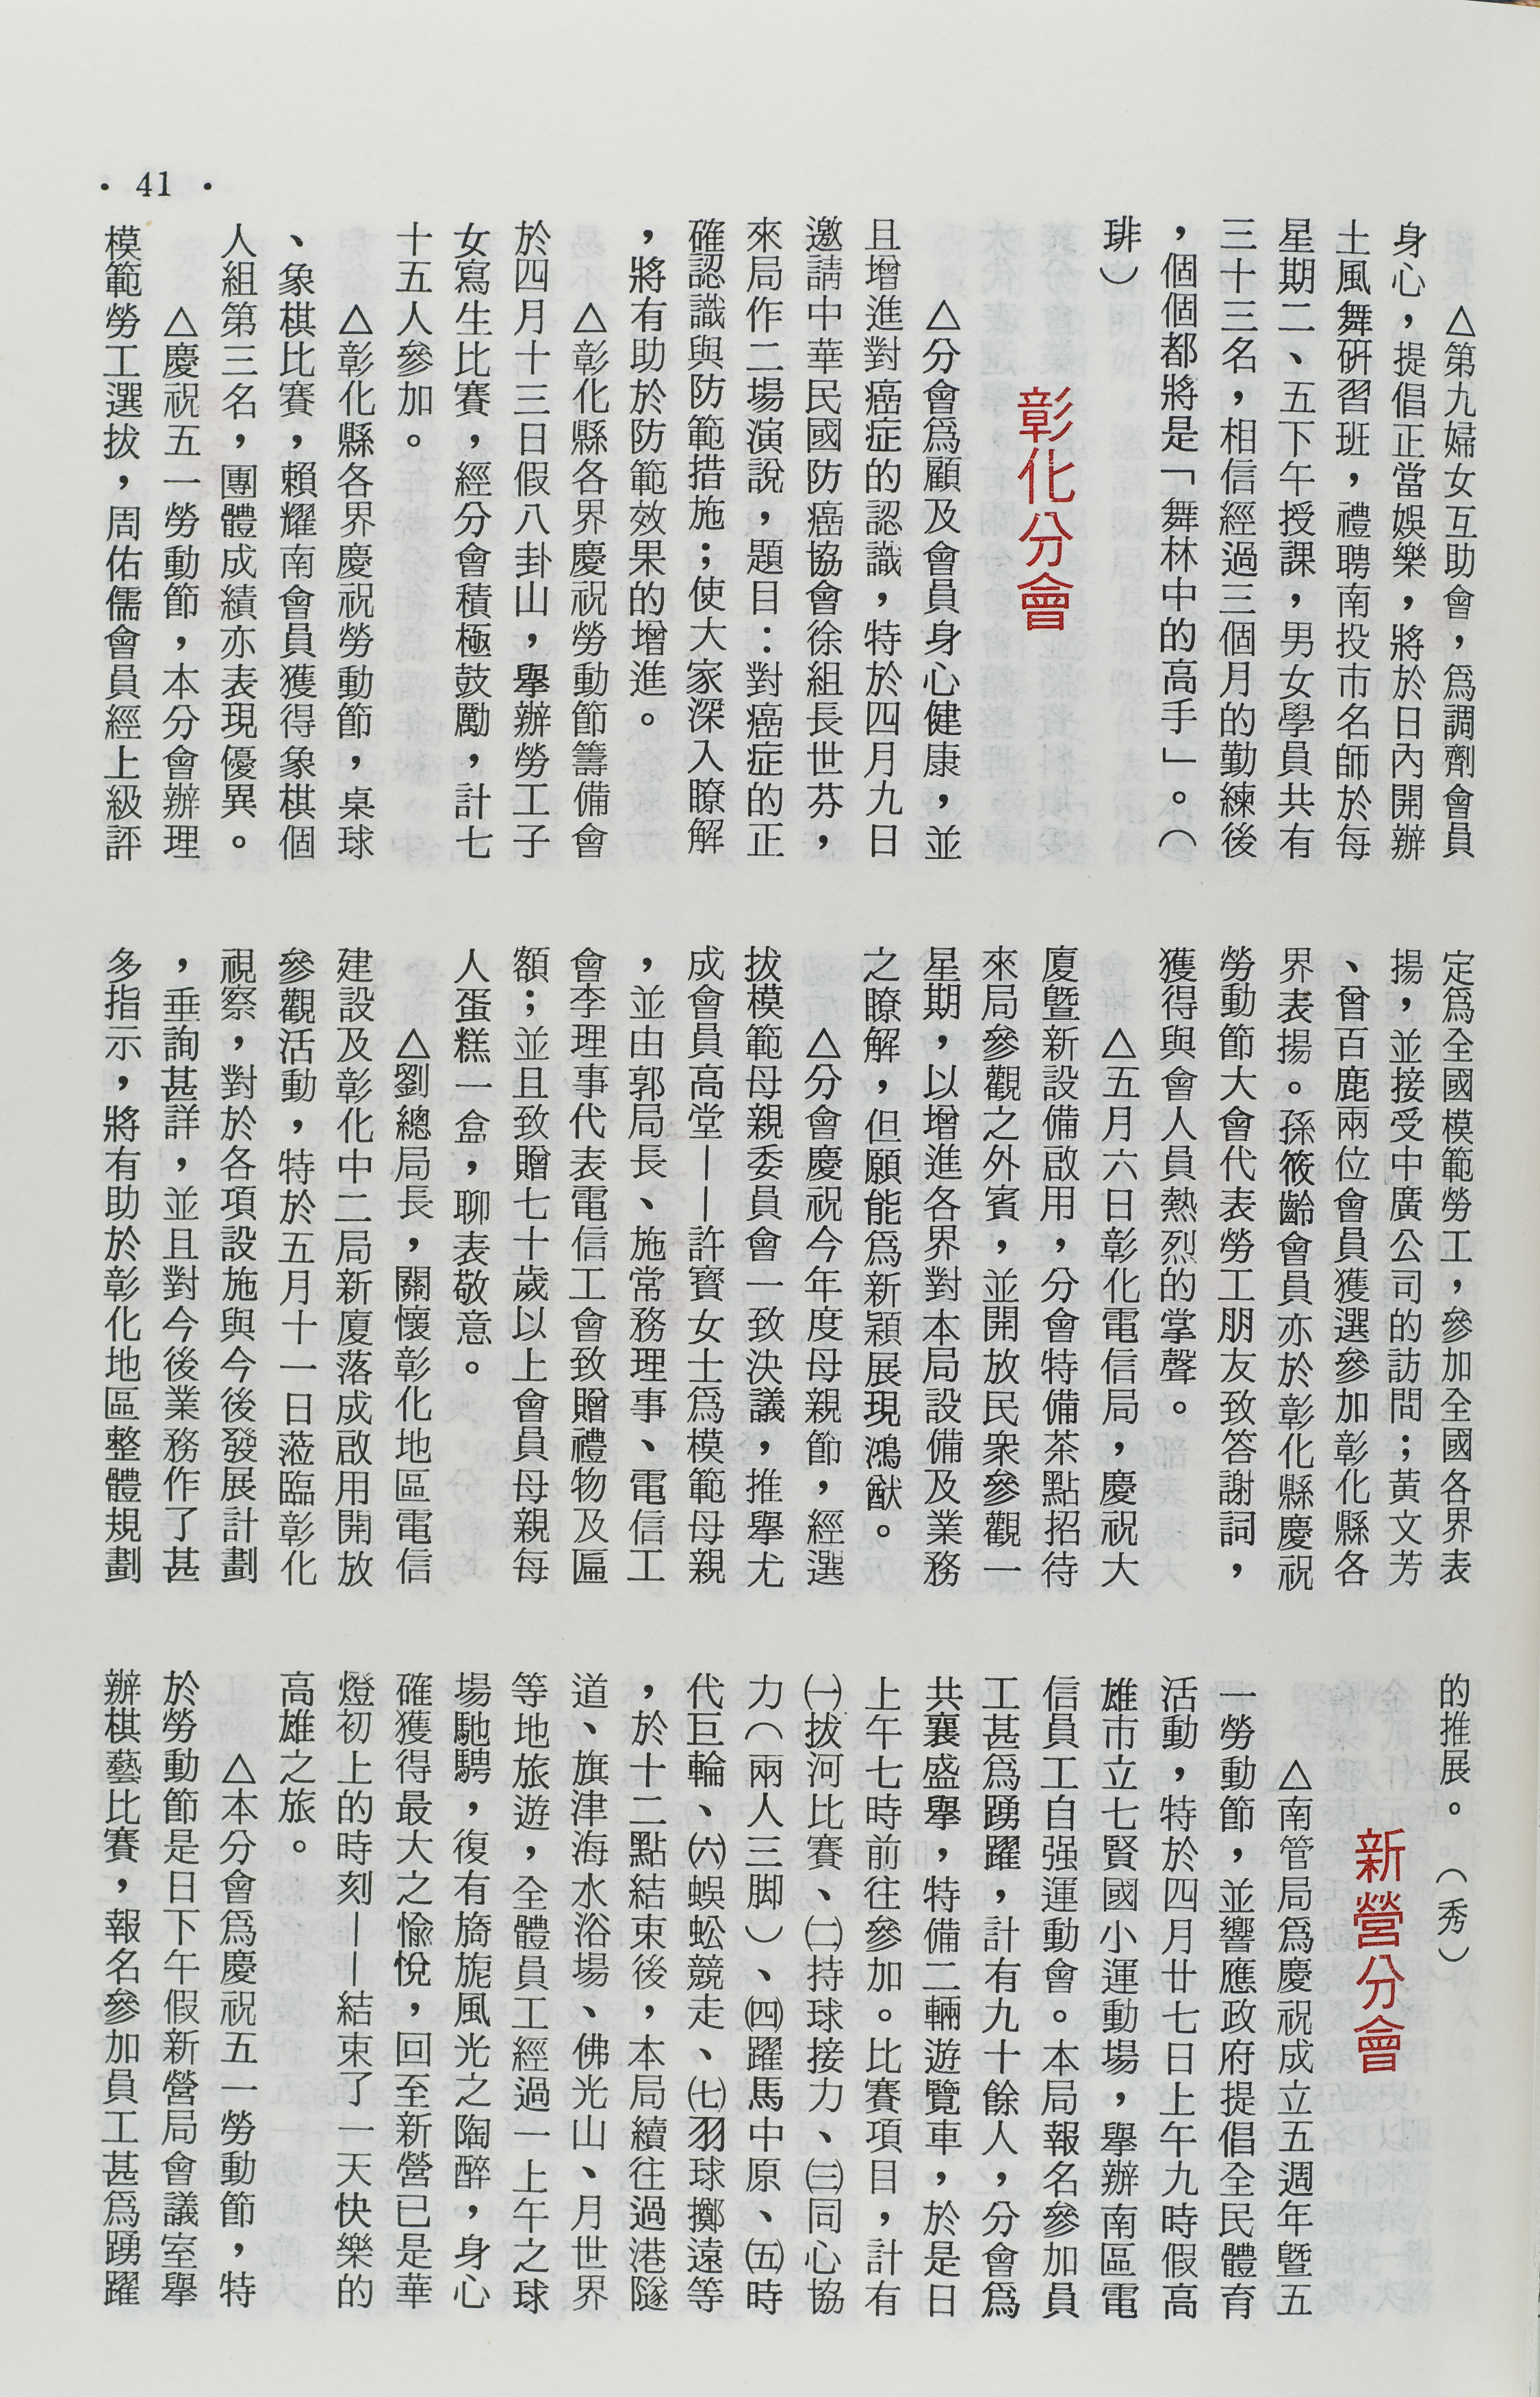 • 41 •
△第九婦女互助會，爲調劑會員
身心，提倡正當娛樂，將於日內開辦
土風舞硏習班，禮聘南投市名師於每
星期二、五下午授課，男女學員共有
三十三名，相信經過三個月的勤練後
，個個都將是「舞林中的高手」。（
琲）
彰化分會
△分會爲顧及會員身心健康，並
且增進對癌症的認識，特於四月九日
邀請中華民國防癌協會徐組長世芬，
來局作二場演說，題目：對癌症的正
確認識與防範措施；使大家深入瞭解
，將有助於防範效果的增進。
△彰化縣各界慶祝勞動節籌備會
於四月十三日假八卦山，舉辦勞工子
女寫生比賽，經分會積極鼓勵，計七
十五人參加。
△彰化縣各界慶祝勞動節，桌球
、象棋比賽，賴耀南會員獲得象棋個
人組第三名，團體成績亦表現優異。
△慶祝五一勞動節，本分會辦理
模範勞工選拔，周佑儒會員經上級評
定爲全國模範勞工，參加全國各界表
揚，並接受中廣公司的訪問；黃文芳
、曾百鹿兩位會員獲選參加彰化縣各
界表揚。孫筱齡會員亦於彰化縣慶祝
勞動節大會代表勞工朋友致答謝詞，
獲得與會人員熱烈的掌聲。
△五月六日彰化電信局，慶祝大
廈暨新設備啟用，分會特備茶點招待
來局參觀之外賓，並開放民衆參觀一
星期，以增進各界對本局設備及業務
之瞭解，但願能爲新穎展現鴻猷。
△分會慶祝今年度母親節，經選
拔模範母親委員會一致決議，推舉尤
成會員高堂——許寶女士爲模範母親
，並由郭局長、施常務理事、電信工
會李理事代表電信工會致贈禮物及匾
額；並且致贈七十歲以上會員母親每
人蛋糕一盒，聊表敬意。
△劉總局長，關懷彰化地區電信
建設及彰化中二局新廈落成啟用開放
參觀活動，特於五月十一日蒞臨彰化
視察，對於各項設施與今後發展計劃
，垂詢甚詳，並且對今後業務作了甚
多指示，將有助於彰化地區整體規劃
的推展。（秀）
新營分會
△南管局爲慶祝成立五週年暨五
一勞動節，並響應政府提倡全民體育
活動，特於四月廿七日上午九時假高
雄市立七賢國小運動場，舉辦南區電
信員工自强運動會。本局報名參加員
工甚爲踴躍，計有九十餘人，分會爲
共襄盛擧，特備二輛遊覽車，於是日
上午七時前往參加。比賽項目，計有
㈠拔河比賽、㈡持球接力、㈢同心協
力（兩人三脚）、㈣躍馬中原、㈤時
代巨輪、㈥蜈蚣競走、㈦羽球擲遠等
，於十二點結束後，本局續往過港隧
道、旗津海水浴場、佛光山、月世界
等地旅遊，全體員工經過一上午之球
場馳騁，復有旖旎風光之陶醉，身心
確獲得最大之愉悅，回至新營已是華
燈初上的時刻——結束了一天快樂的
高雄之旅。
△本分會爲慶祝五一勞動節，特
於勞動節是日下午假新營局會議室擧
辦棋藝比賽，報名參加員工甚爲踴躍